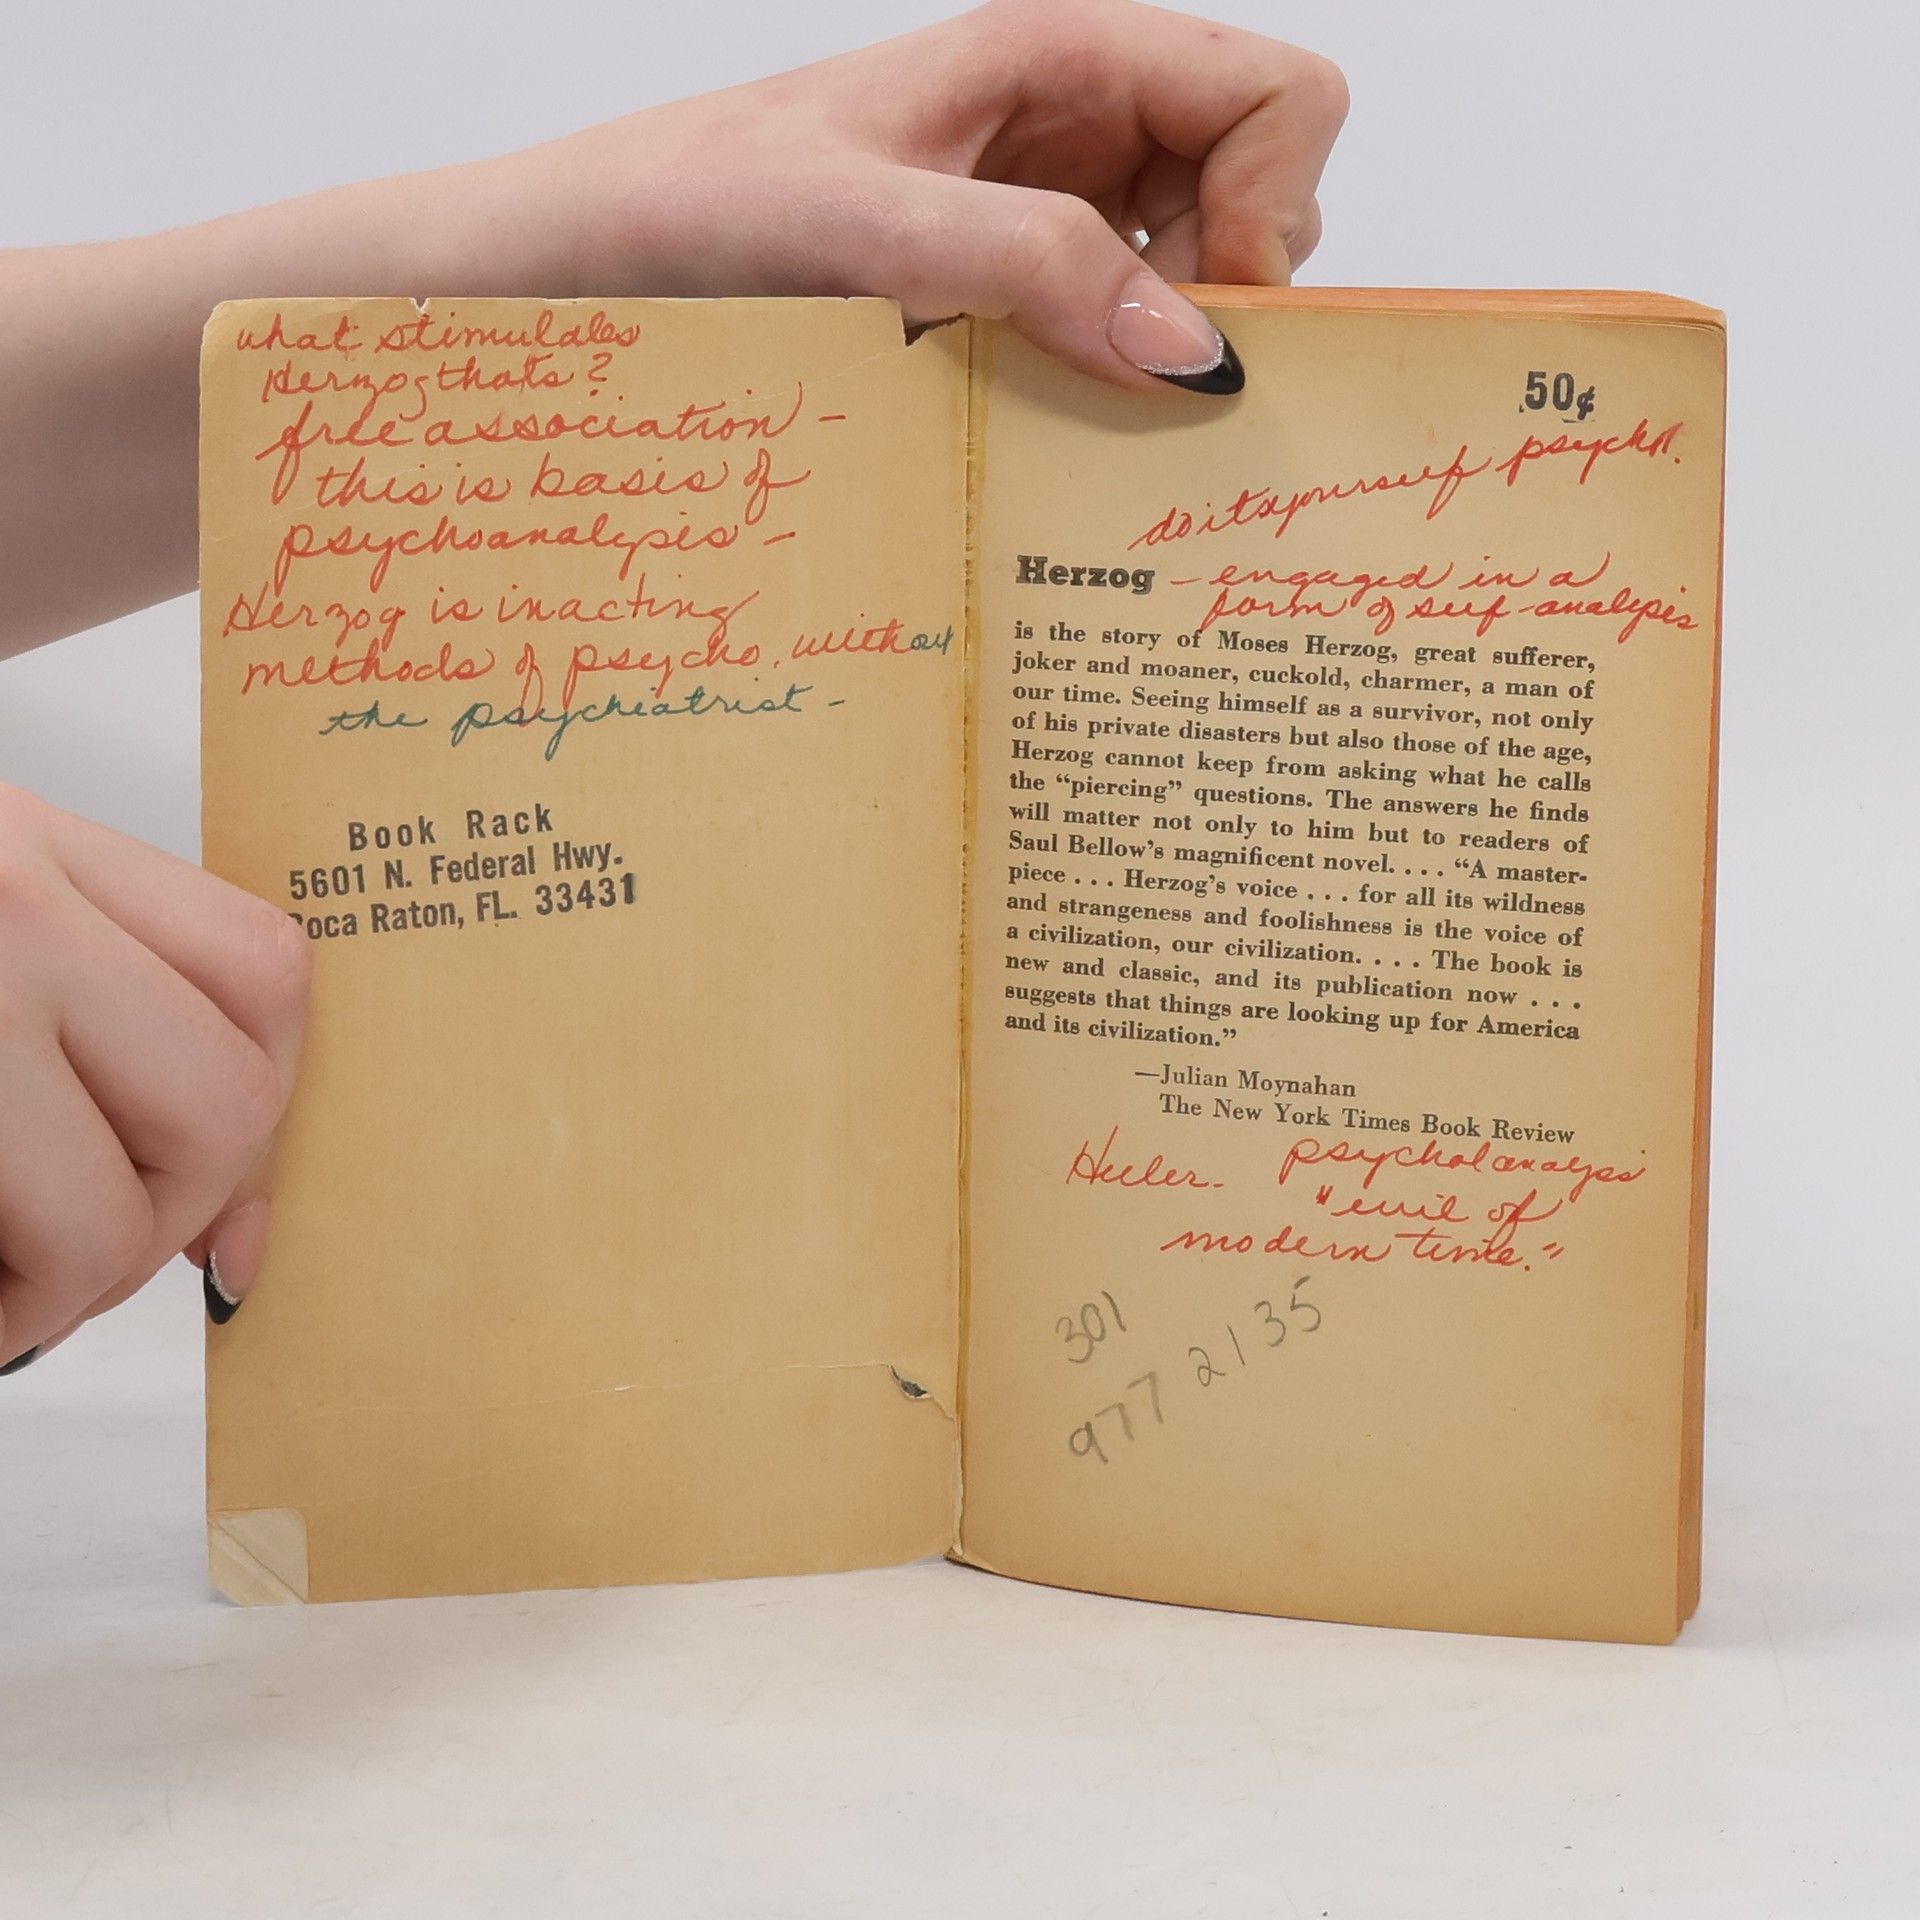 what stimulates
Herzog thots?
free association -
this is basis of
psychoanalysis -
Herzog is inacting
methods of psycho. without
the psychiatrist -
Book Rack
5601 N. Federal Hwy.
Boca Raton, FL. 33431
50¢
do it yourself psychol.
Herzog - engaged in a
form of self-analysis
is the story of Moses Herzog, great sufferer,
joker and moaner, cuckold, charmer, a man of
our time. Seeing himself as a survivor, not only
of his private disasters but also those of the age,
Herzog cannot keep from asking what he calls
the “piercing” questions. The answers he finds
will matter not only to him but to readers of
Saul Bellow’s magnificent novel. . . . “A master-
piece . . . Herzog’s voice . . . for all its wildness
and strangeness and foolishness is the voice of
a civilization, our civilization. . . . The book is
new and classic, and its publication now . . .
suggests that things are looking up for America
and its civilization.”
—Julian Moynahan
The New York Times Book Review
psychol analysis
"evil of
modern time."
301
977 2135